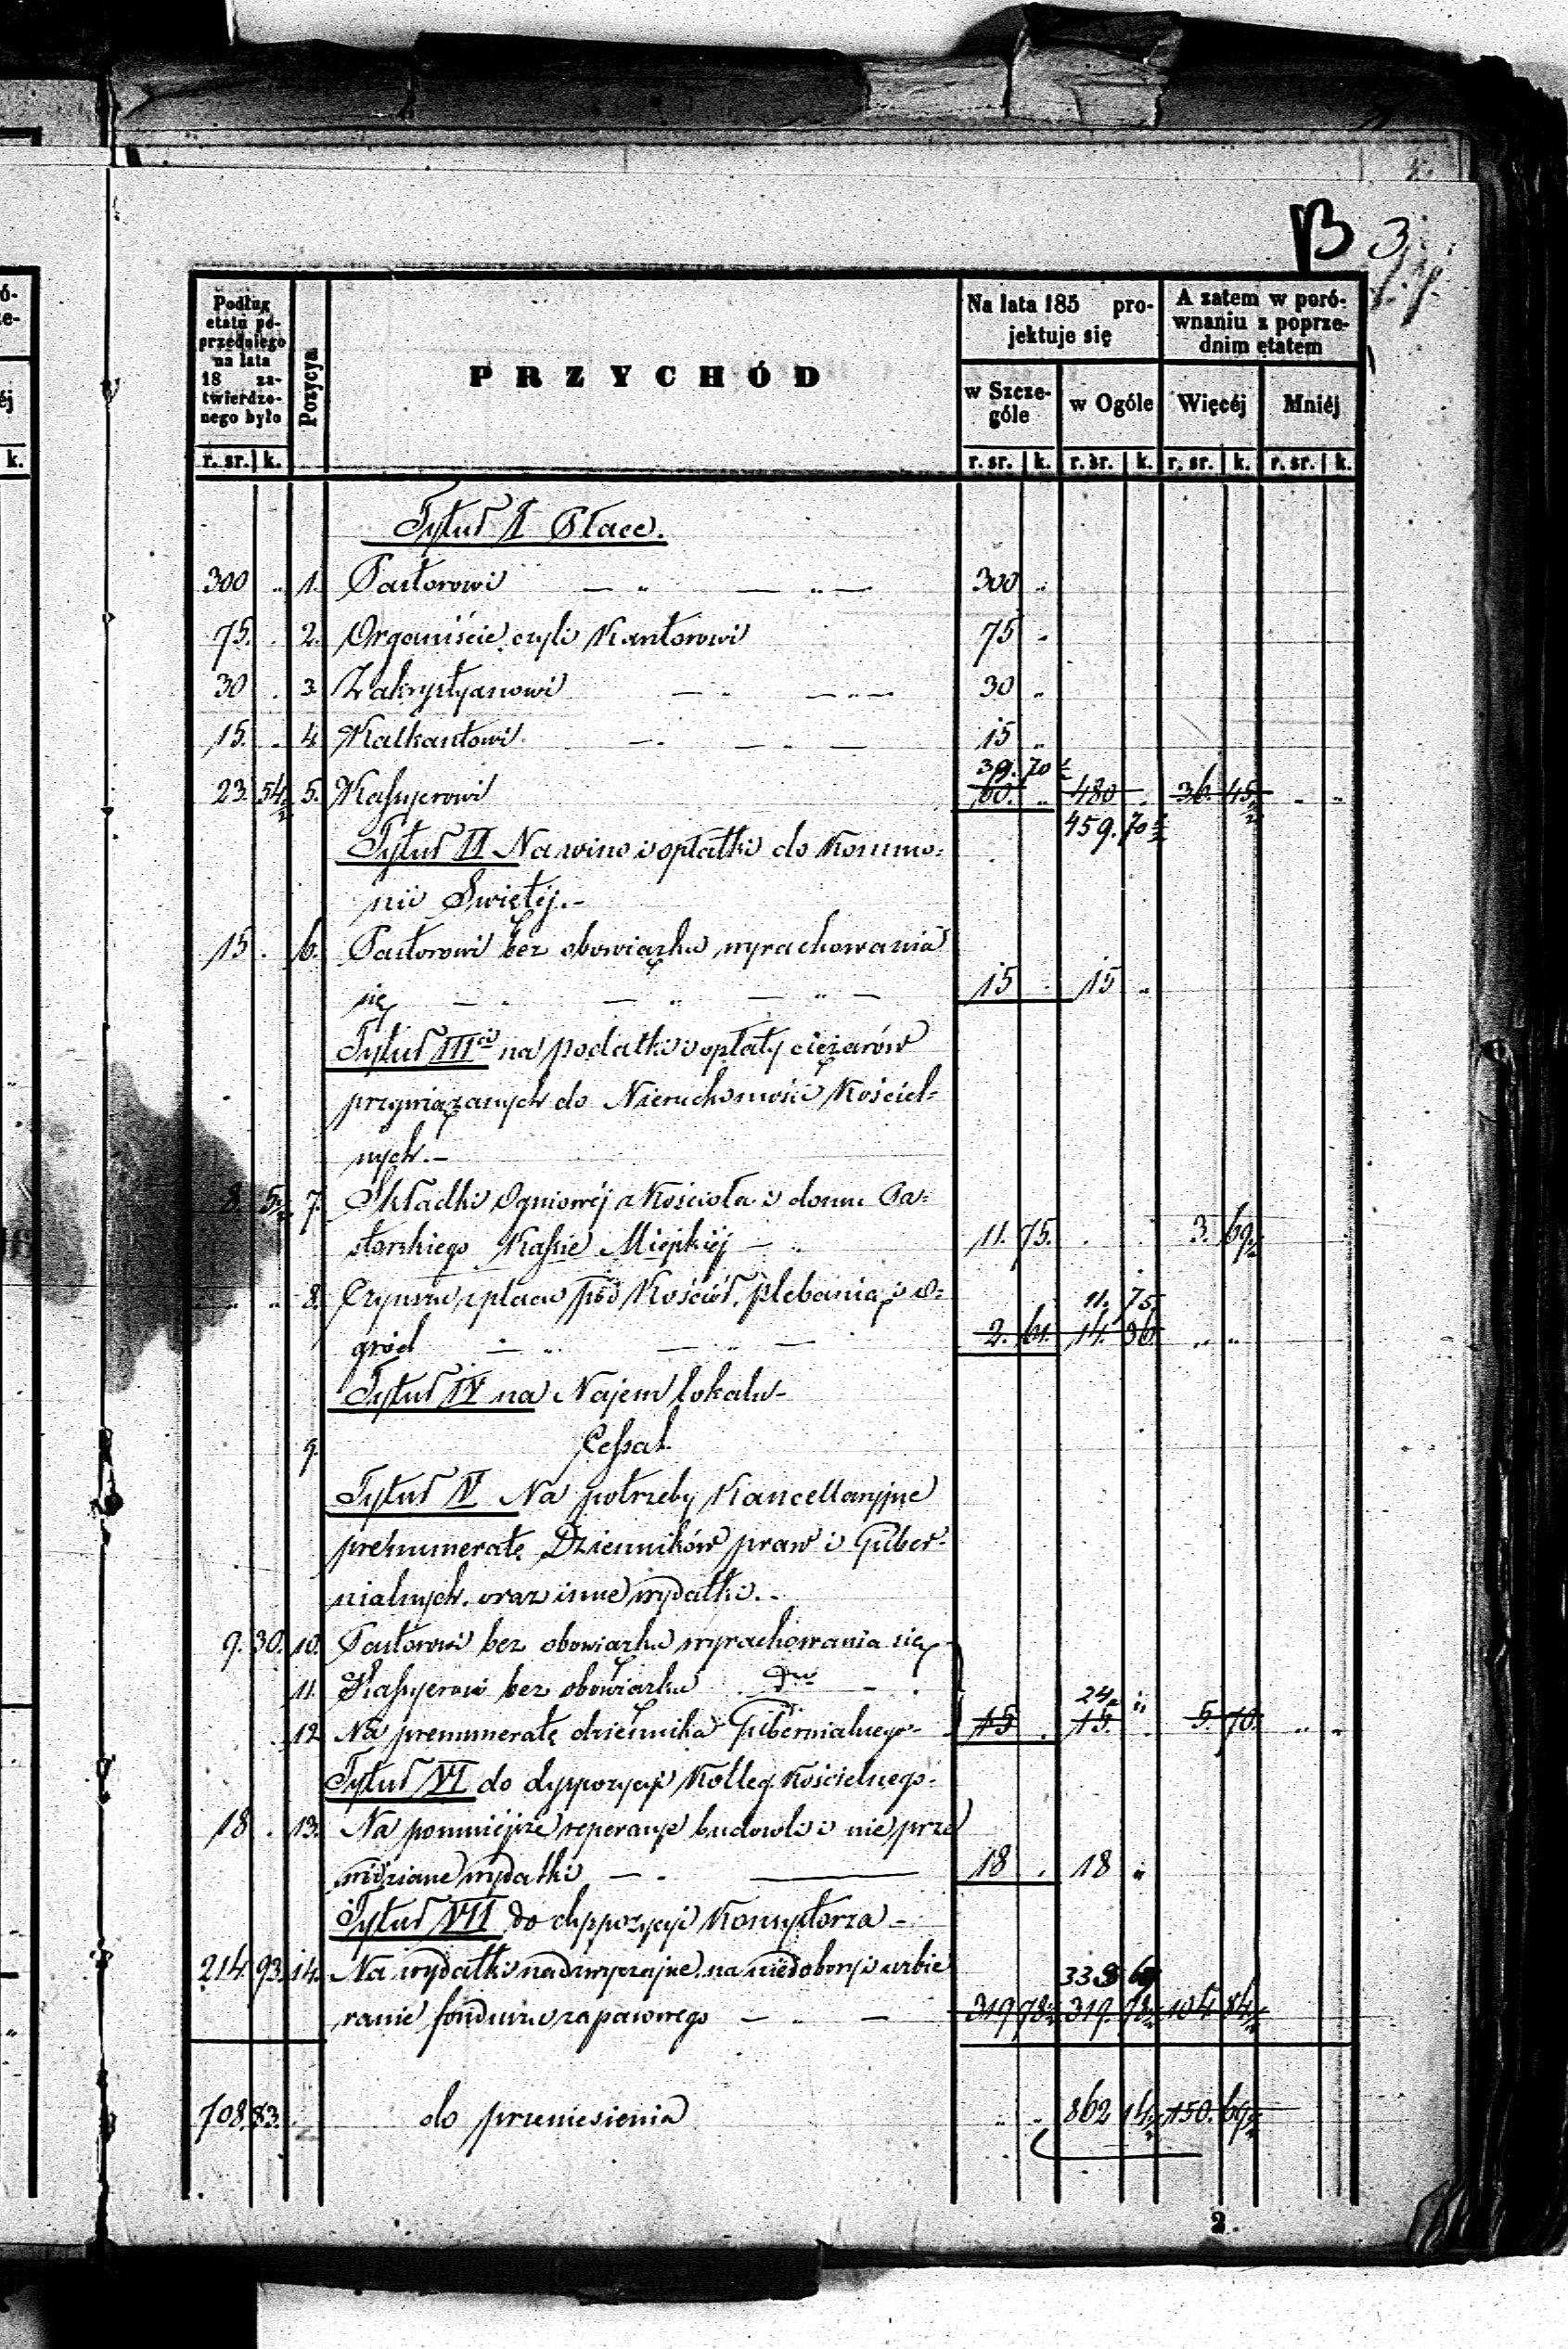 B 3
Podług etatu poprzedniego na lata 18 zatwierdzonego było
Pozycya
PRZYCHÓD
Na lata 185 projektuje się
A zatem w porównaniu z poprzednim etatem
w Szczególe
w Ogóle
Więcéj
Mniéj
r. sr. k. r. sr. k. r. sr. k. r. sr. k. r. sr. k.
Tytuł I Płace.
300 „ 1. Pastorowi — „ — „ — 300 „
75. . 2. Organiście czyli Kantorowi 75 „
30 . 3. Zakrystyanowi — „ — „ — 30 „
15. „ 4. Kalkantowi — . — „ — 15 „
39. 70 ½
23. 54½ 5. Kassyerowi 60. „ 480 . 36. 45½ „ „
459. 70½
Tytuł II Na wino i opłatki do Kommu=
nii Swiętéj.–
15 . 6. Pastorowi bez obowiązku wyrachowania
się — „ — „ — „ — 15 . 15 „
Tytuł III na podatki i opłaty ciężarów
przywiązanych do Nieruchomości Kościel=
nych.–
8. 5½ 7. Składki Ogniowéj z Kościoła i domu Pa=
storskiego Kassie Miejskiéj — „ 11. 75. . . 3. 69½
„ „ 8. Czynszu z placu pod Kościół, plebanią i o=
11. 75.
gród — „ — „ — 2. 61. 14. 36. „ „
Tytuł IV na Najem lokalu–
9. Cessat
Tytuł V Na potrzeby Kancellaryjne
prenumeratę Dzienników praw i Guber=
nialnych, oraz inne wydatki.–
9. 30. 10. Pastorowi bez obowiązku wyrachowania się
11. Kassyerowi bez obowiązku Dto – .
24 „
12 Na prenumeratę dziennika Gubernialnego– 15 . 15. . 5. 70. „ „
Tytuł VI do dyspozycyi Kolleg. Kościelnego–
18 . 13. Na pomniéjsze reperacye budowli i nie prze
widziane wydatki — . — 18 . 18 „
Tytuł VII do dyspozycyi Konsystorza –
214. 93. 14. Na wydatki nadzwyczajne, na niedobory i uzbie
333 69
ranie funduszu zapasowego — „ — 319 78½ 319. 78½ 104 84½
708. 83. do przeniesienia „ „ 862 14½ 150. 69½
2